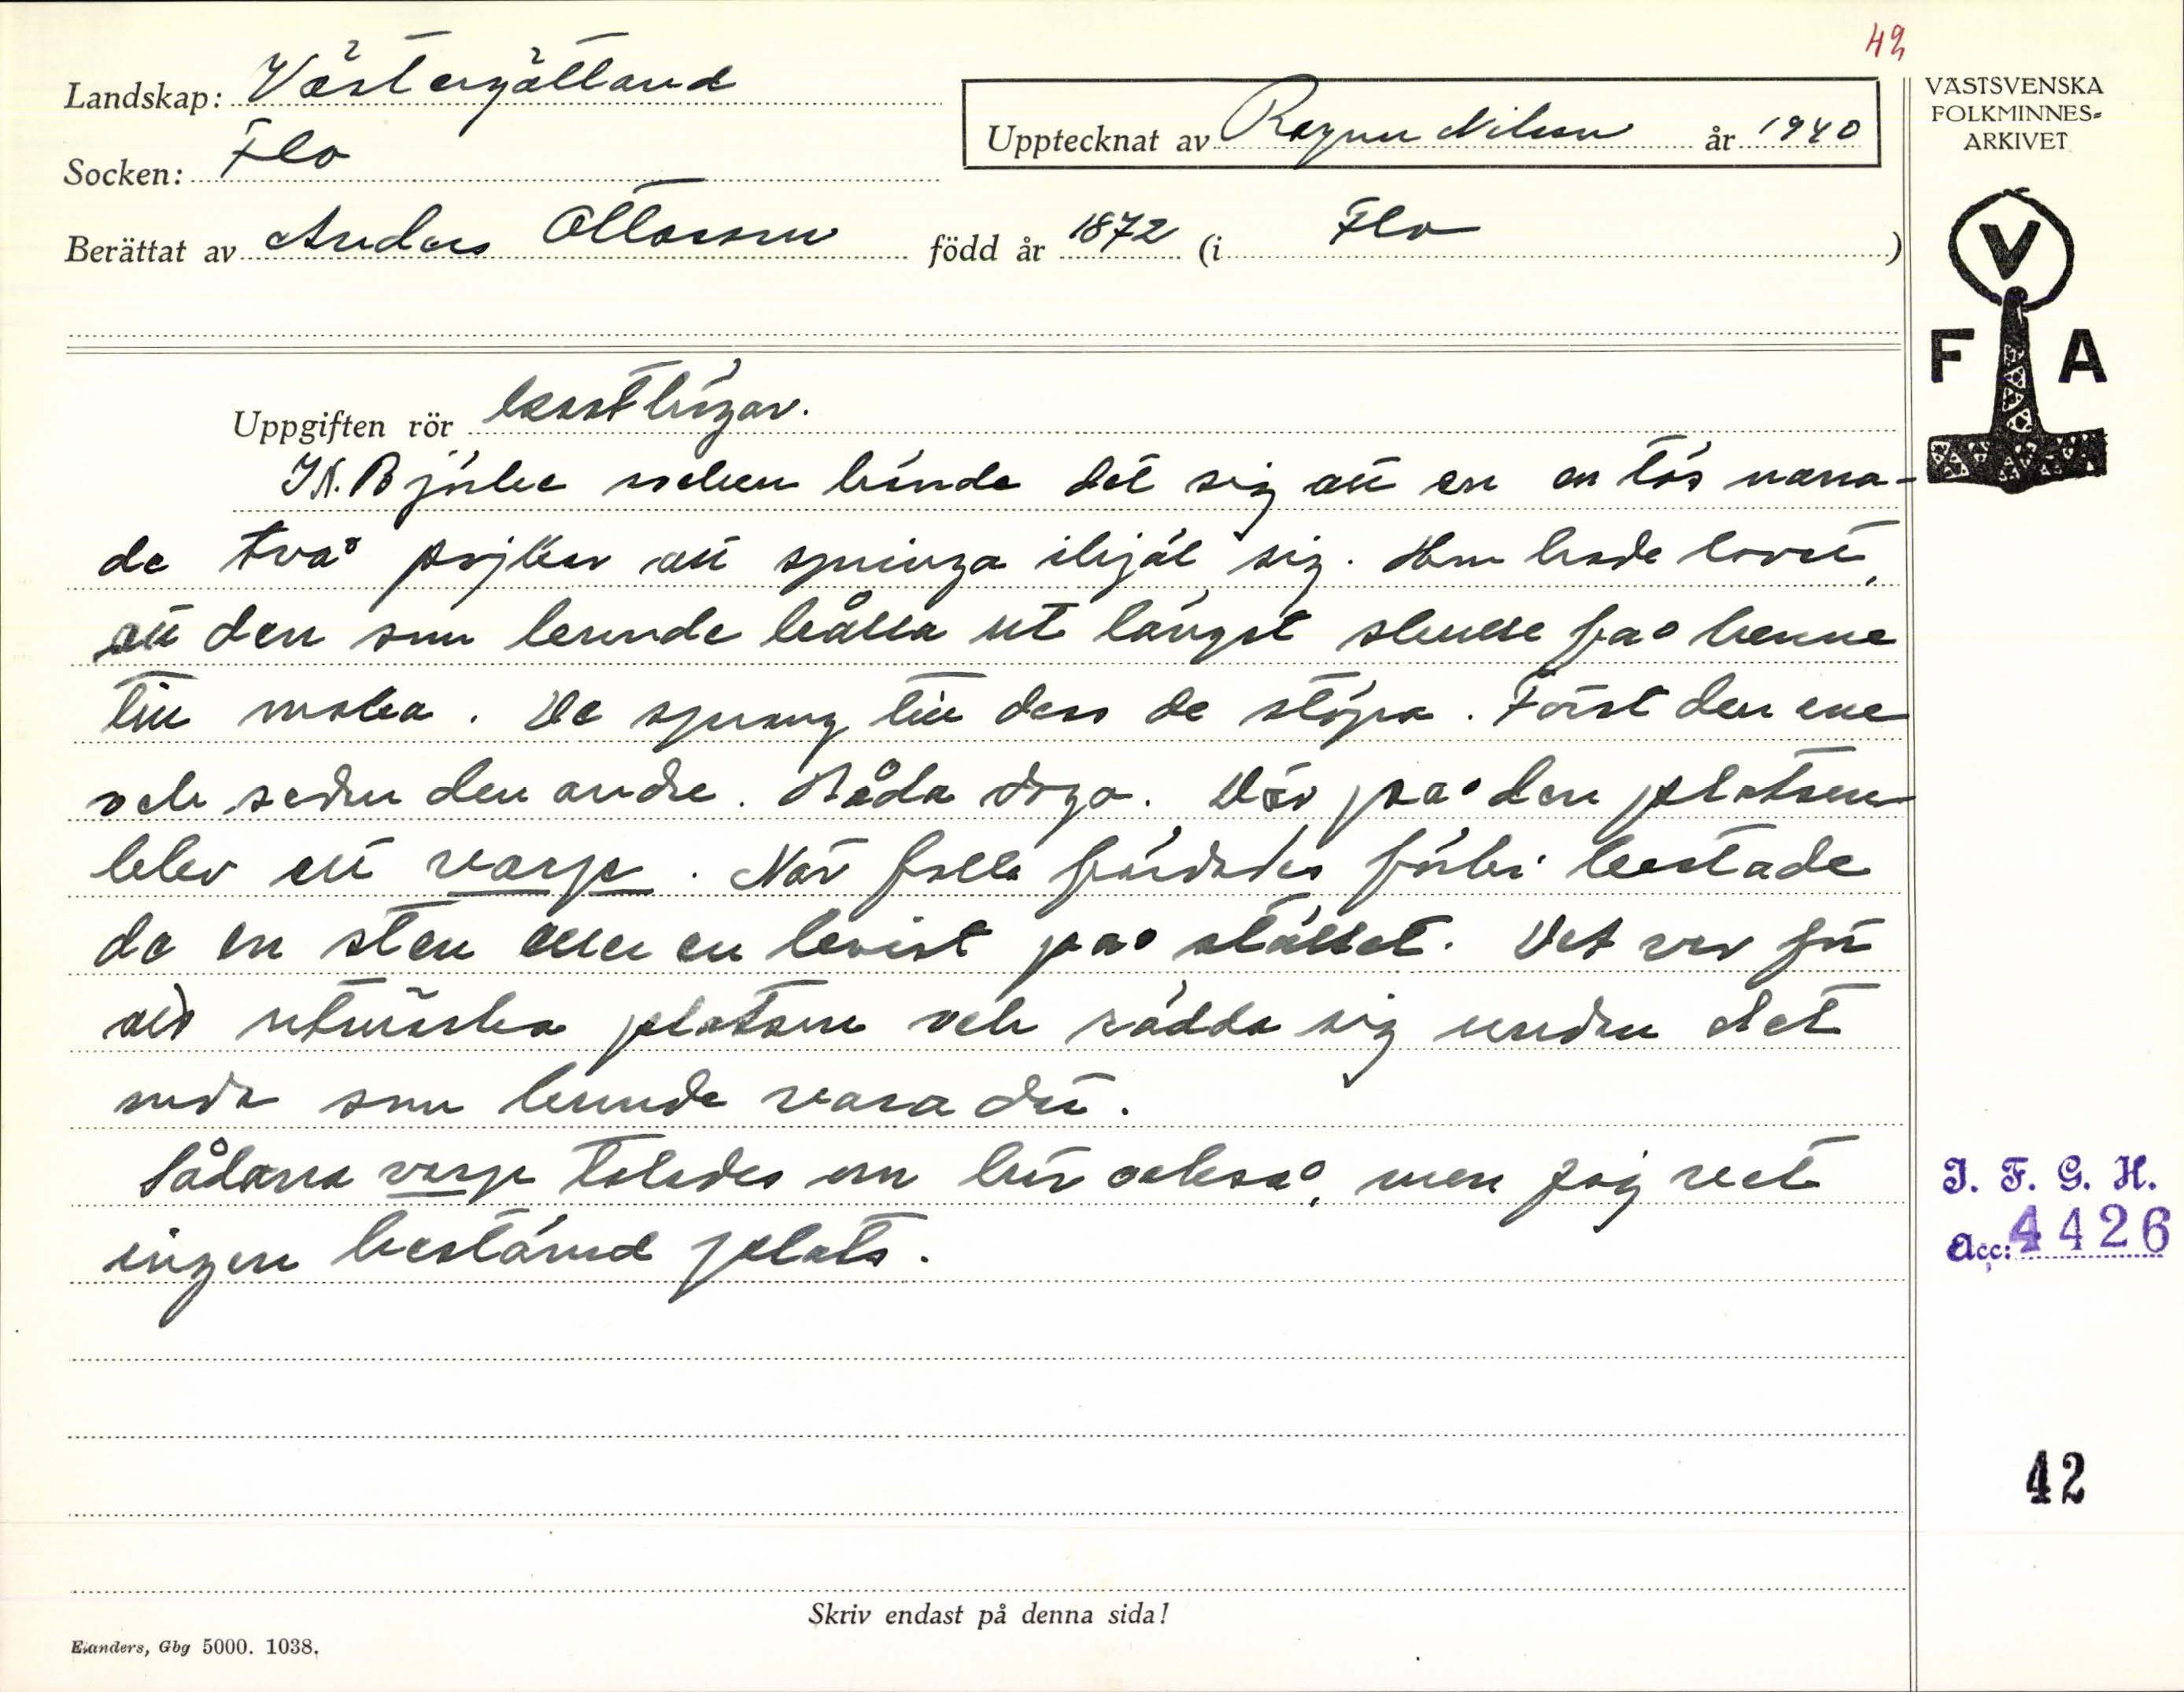 42
Landskap: Västergötland
Upptecknat av Ragnar Nilsson år 1940
Socken: Flo
Berättat av Anders Ottosson född år 1872 (i Flo)
VÄSTSVENSKA
FOLKMINNES-
ARKIVET
V
F A
Uppgiften rör kasthögar.
I N. Björke socken hände det sig att en en tös narra-
de två pojkar att springa ihjäl sig. Hon hade lovat,
att den som kunde hålla ut längst skulle få henne
till maka. De sprang till dess de stöpa. Först den ene
och sedan den andre. Båda dogo. Där på den platsen
blev ett varp. När folk färdades förbi kastade
de en sten eller en kvist på stället. Det var för
att utmärka platsen och rädda sig undan det
onda som kunde vara där.
Sådana varp talades om här också, men jag vet
ingen bestämd plats.
I. F. G. H.
Acc: 4426
42
Skriv endast på denna sida!
Elanders, Gbg 5000. 1038.